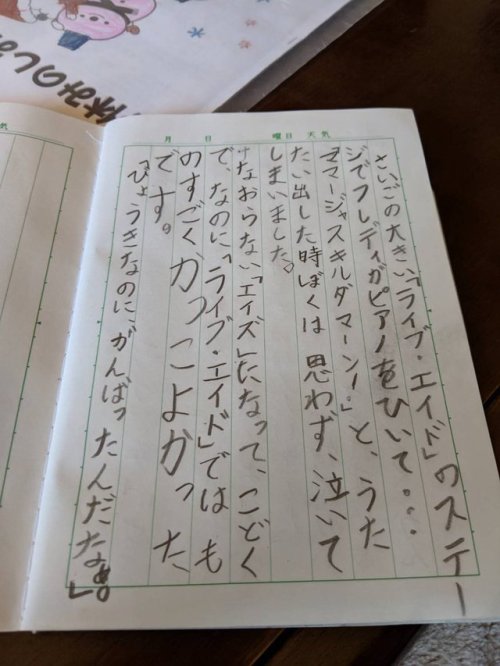 休みのしお
気
月 日 曜日 天気
さいごの大きい「ライブ・エイド」のステー
ジでフレディがピアノをひいて・・・
「ママージャスキルダマーン!」と、うた
たい出した時ぼくは思わず、泣いて
しまいました。
けなおらない「エイズ」になって、こどく
で、なのに「ライブ・エイド」ではも
のすごくかっこよかった
です。
「びょうきなのに、がんばったんだなぁ」